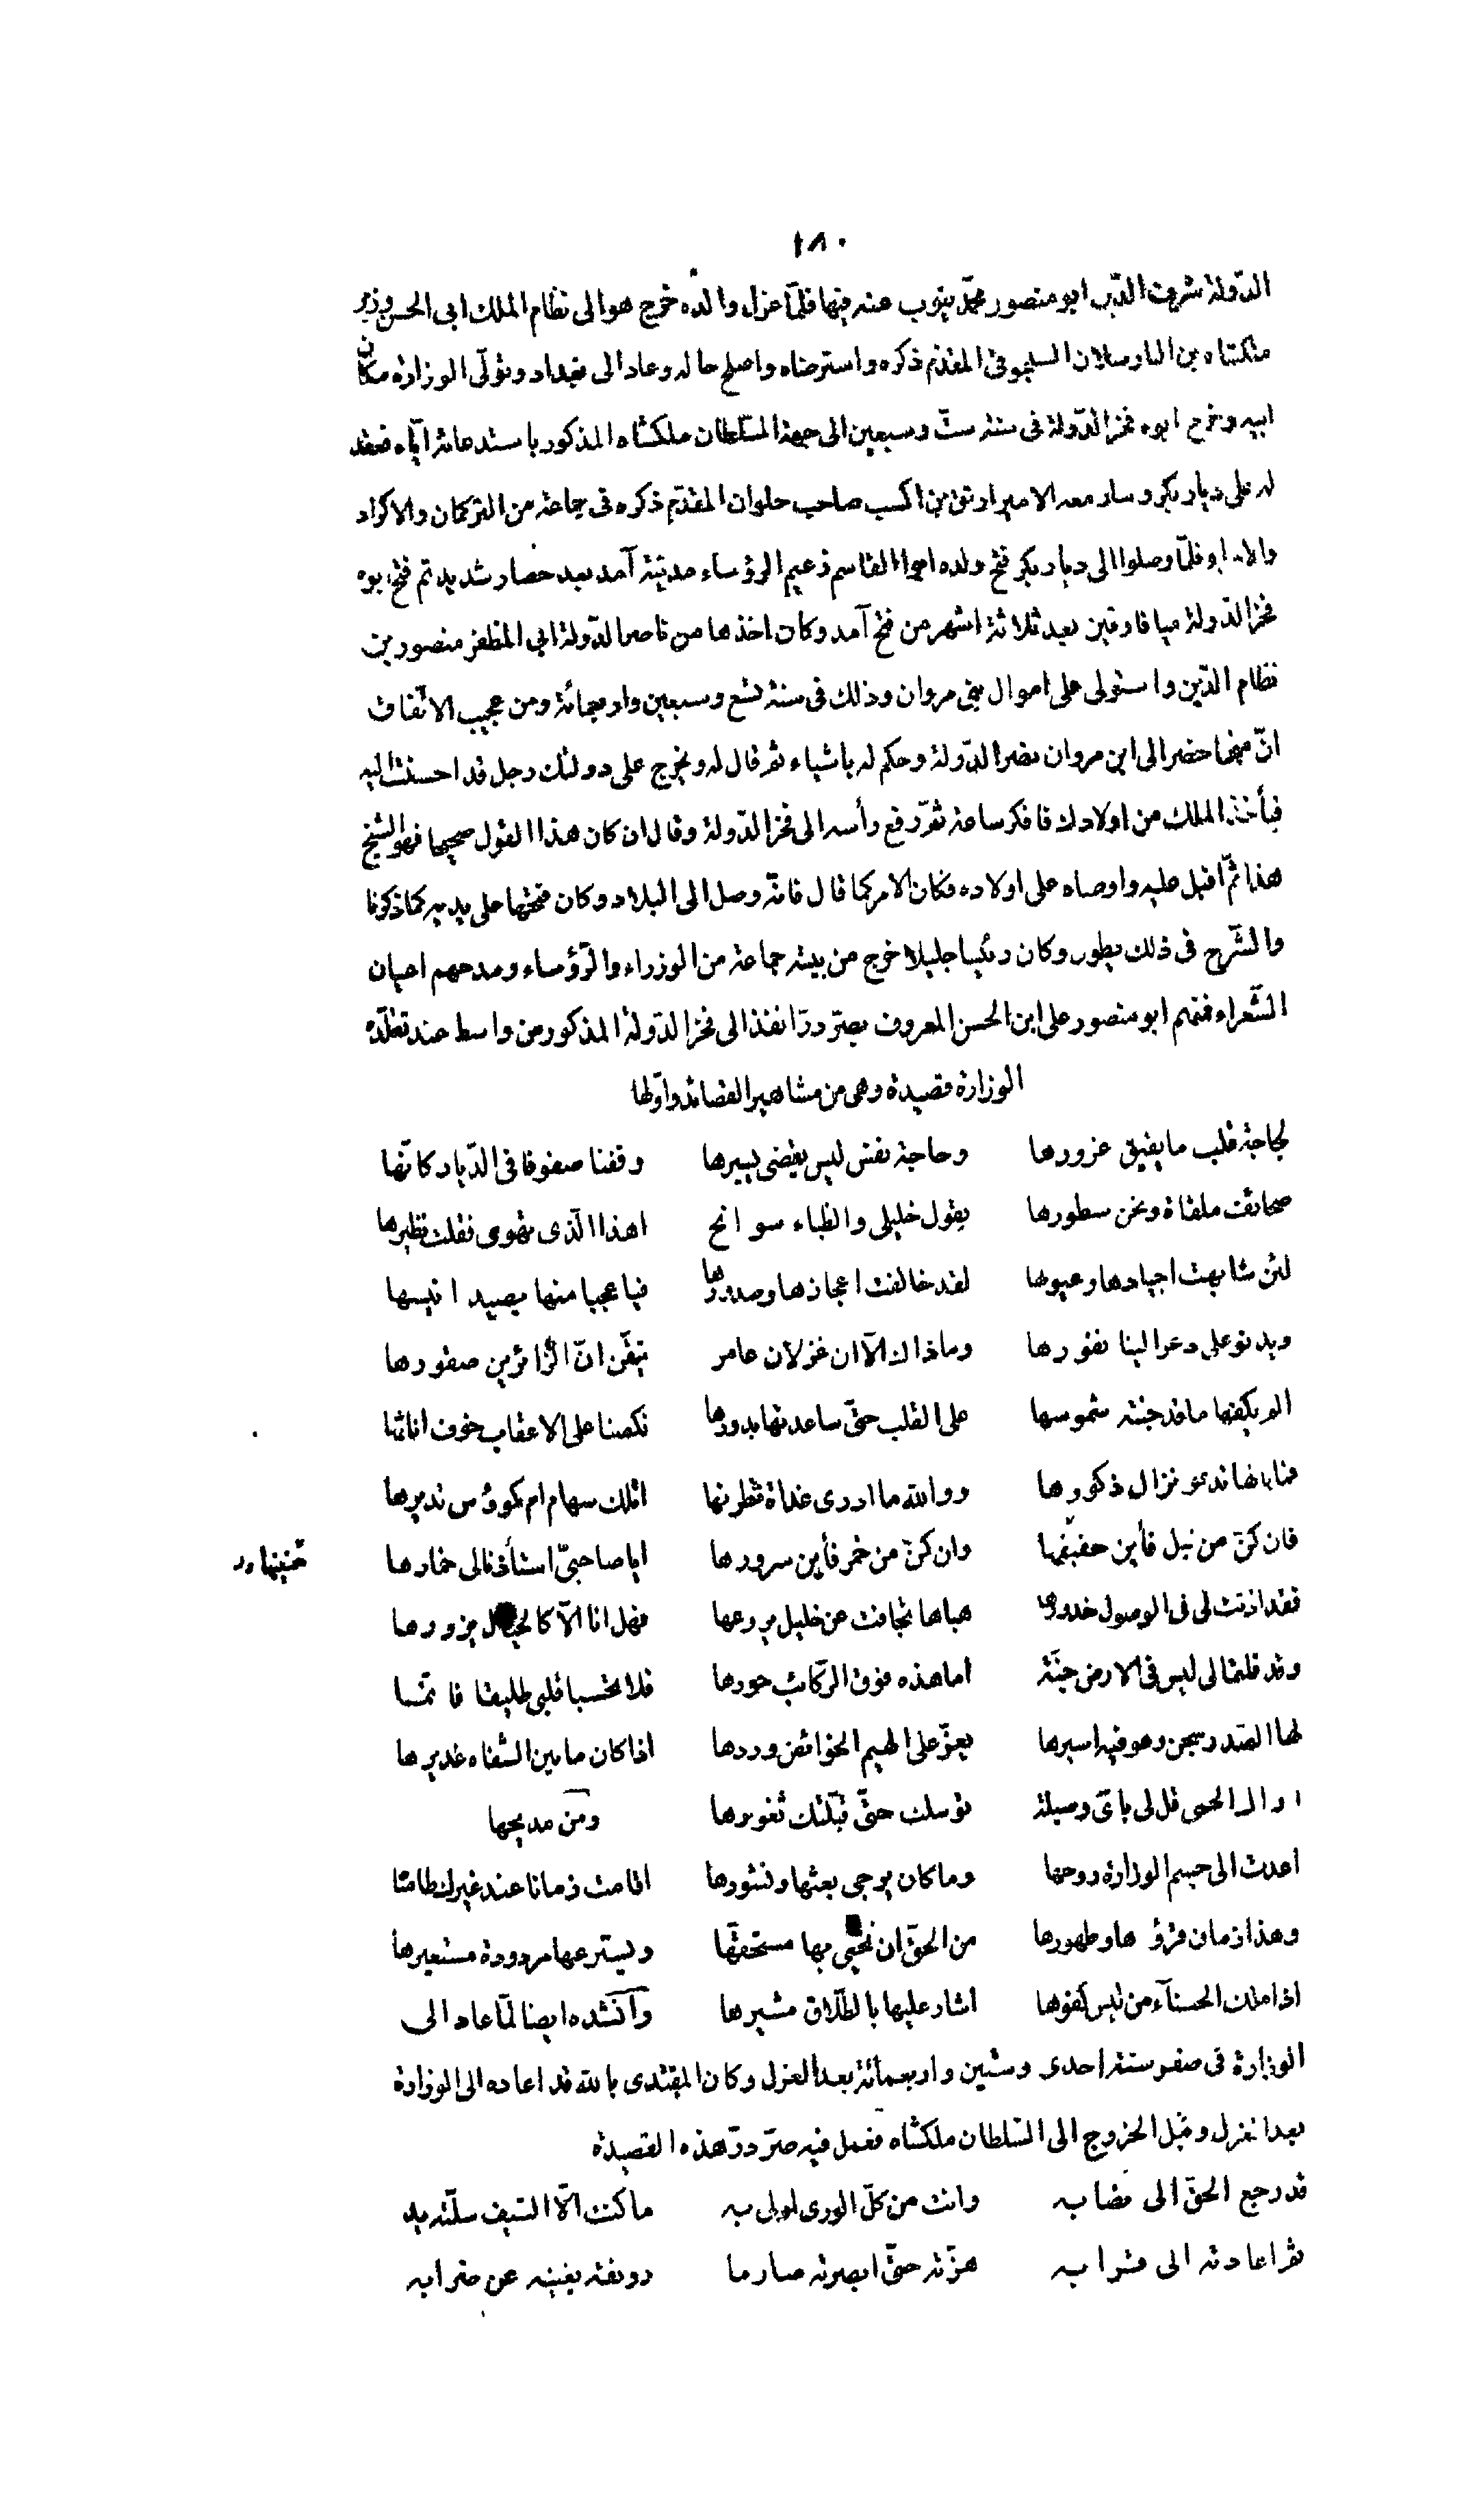 ١٨٠
الدّولة شرف الدّين ابو منصور محمّد ينوب عنه فيها فلمّا عزل والده خرج هو الى نظام الملك ابى الحسن وزير
ملكشاه بن الب ارسلان السلجوقى المقدّم ذكره واسترضاه واصلح حاله وعاد الى بغداد وتولّى الوزارة مكان
ابيه وخرج ابوه فخر الدّولة فى سنة ستّ وسبعين الى جهة السّلطان ملكشاه المذكور باستدعائه ايّاه فعقد
له على ديار بكر وسار معه الامير ارتق بن اكسب صاحب حلوان المقدّم ذكره فى جماعة من التركمان والاكراد
والامراء فلمّا وصلوا الى ديار بكر فتح ولده ابو القاسم زعيم الرؤساء مدينة آمد بعد حصار شديد ثم فتح ابوه
فخر الدّولة ميافارقين بعد ثلاثة اشهر من فتح آمد وكان اخذها من ناصر الدّولة ابى المظفر منصور بن
نظام الدّين واستولى على اموال بنى مروان وذلك فى سنة تسع وسبعين واربعمائة ومن عجيب الاتّفاق
انّ منجما حضر الى ابن مروان نصر الدّولة وحكم له باشياء ثم قال له ويخرج على دولتك رجل قد احسنت اليه
فيأخذ الملك من اولادك فافكر ساعة ثمّ رفع رأسه الى فخر الدّولة وقال ان كان هذا القول صحيحا فهو الشيخ
هذا ثمّ اقبل عليه واوصاه على اولاده فكان الامر كما قال فانّه وصل الى البلاد وكان فتحها على يديه كما ذكرنا
والشّرح فى ذلك يطور وكان رئيسا جليلا خرج من بيته جماعة من الوزراء والرّؤساء ومدحهم اعيان
الشّعراء فمنهم ابو منصور على ابن الحسن المعروف بصرّ درّ انفذ الى فخر الدّولة المذكور من واسط عند تقلّده
الوزارة قصيدة وهى من مشاهير القصائد واوّلها
لجاجة قلب ما يفيق غرورها وحاجة نفس ليس يقضى يسيرها وقفنا صفوفا فى الدّيار كانّها
صحائف ملقاة ونحن سطورها يقول خليلى والظباء سوانح اهذا الّذى تهوى فقلت نظيرها
لئن شابهت اجيادها وعيونها لقد خالفت اعجازها وصدورها فيا عجبا منها يصيد انيسها
ويدنو على ذعر الينا نفورها وما ذاك الّا ان غزلان عامر تيقّن انّ الزّائرين صقورها
الم يكفها ما قد جنته شموسها على القلب حتّى ساعدتها بدورها نكصنا على الاعقاب خوف اناثها
فما بالها تدعو نزال ذكورها ووالله ما ادرى غداة نظرنها اتلك سهام ام كؤوس تديرها
فان كنّ من نبل فأين حفيفها وان كنّ من خمر فأين سرورها ايا صاحبىّ استأذنا لى خمارها
فقد اذنت لى فى الوصول خدورها هباها تجافت عن خليل يروعها فهل انا الّا كالخيال يزورها
وقد قلتما لى ليس فى الارض جنّة اما هذه فوق الرّكائب حورها فلا تحسبا قلبى طليقا فانّما
لها الصّدر سجن وهو فيه اسيرها يعزّ على الهيم الخوائض وردها اذا كان ما بين الشّفاه غديرها
اراك الحمى قل لى باىّ وسيلة توسلت حتّى قبّلتك ثغورها ومن مديحها
اعدت الى جسم الوزارة روحها وما كان يرجى بعثها ونشورها اقامت زمانا عند غيرك طامثا
وهذا زمان قرؤها وطهورها من الحقّ ان يحبى بها مستحقّها ويسترعها مردودة مستعيرها
اذا ملك الحسنآء من ليس كفوها اشار عليها بالطّلاق مشيرها وانشده ايضا لمّا عاد الى
الوزارة فى صفر سنة احدى وستين واربعمائة بعد العزل وكان المقتدى بالله قد اعاده الى الوزارة
بعد العزل وقبل الخروج الى السّلطان ملكشاه فعمل فيه صرّ درّ هذه القصيدة
قد رجع الحقّ الى نصابه وانت من كلّ الورى اولى به ما كنت الّا السّيف سلّته يد
ثم اعادته الى قرابه هزّته حتّى ابصرته صارما رونقه يغنيه عن ضرابه